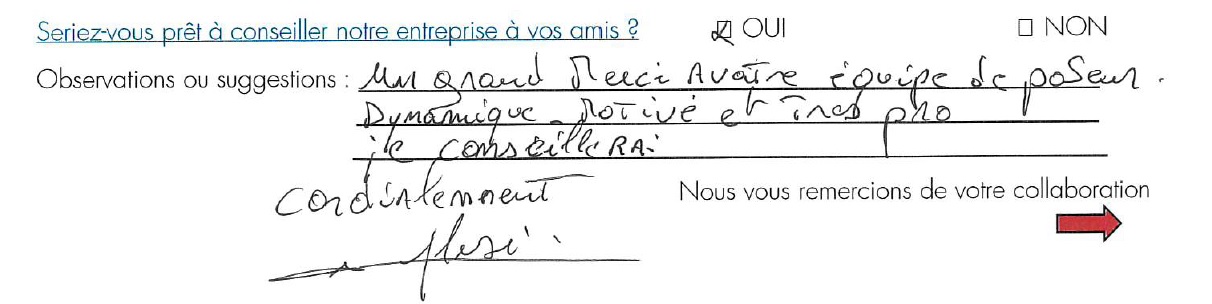 Seriez-vous prêt à conseiller notre entreprise à vos amis ? OUI NON
Observations ou suggestions : Un grand Merci A votre équipe de poseur.
Dynamique - Motivé et Très pro
je conseillerai
cordialement
Nous vous remercions de votre collaboration